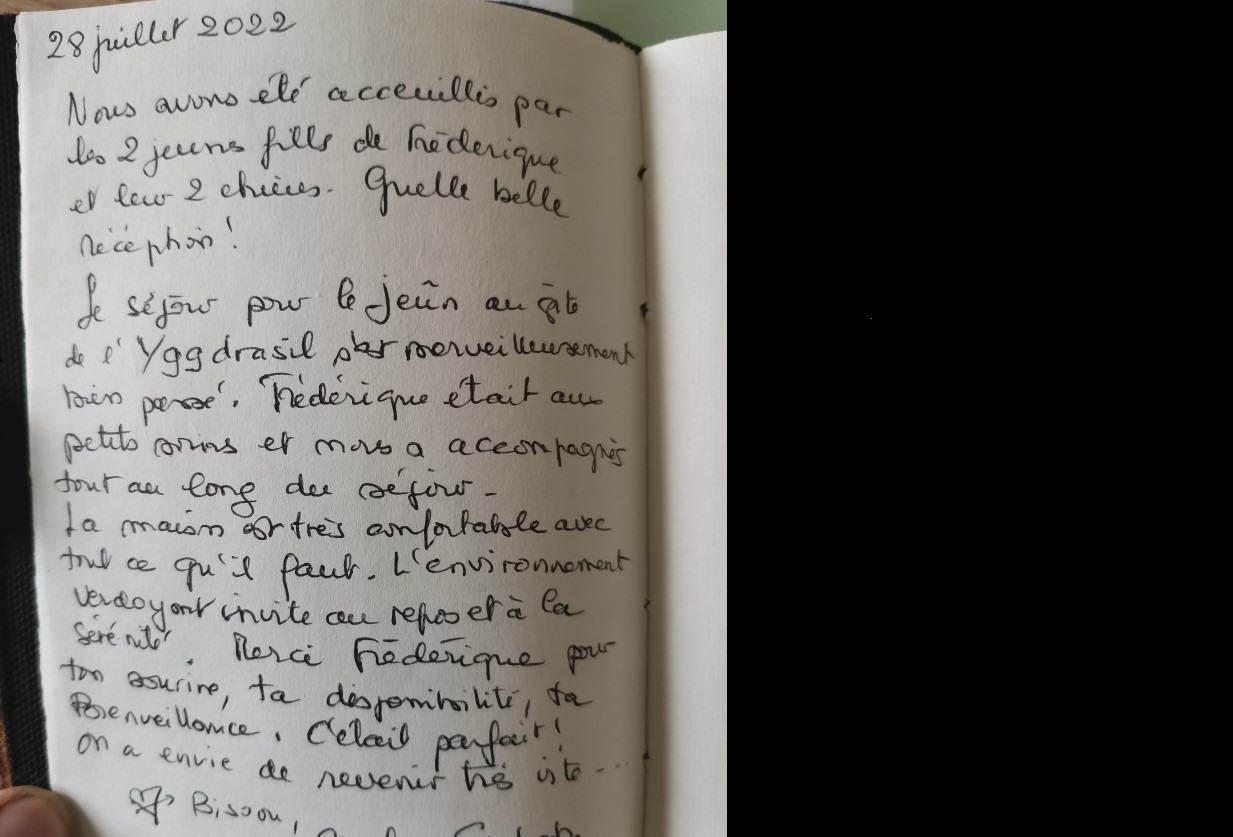 28 juillet 2022
Nous avons été acceuillis par
les 2 jeunes filles de Fréderique
et leur 2 chiens. Quelle belle
récéption !
Le séjour pour le jeûn au gîte
de l'Yggdrasil s'est merveilleusement
bien passé. Frédérique était aux
petits soins et nous a accompagnés
tout au long du séjour -
La maison est très confortable avec
tout ce qu'il faut. L'environnement
verdoyant invite au repos et à la
sérénité. Merci Fréderique pour
ton sourire, ta disponibilité, ta
Bienveillance. C'était parfait !
On a envie de revenir très vite ...
Bisou,